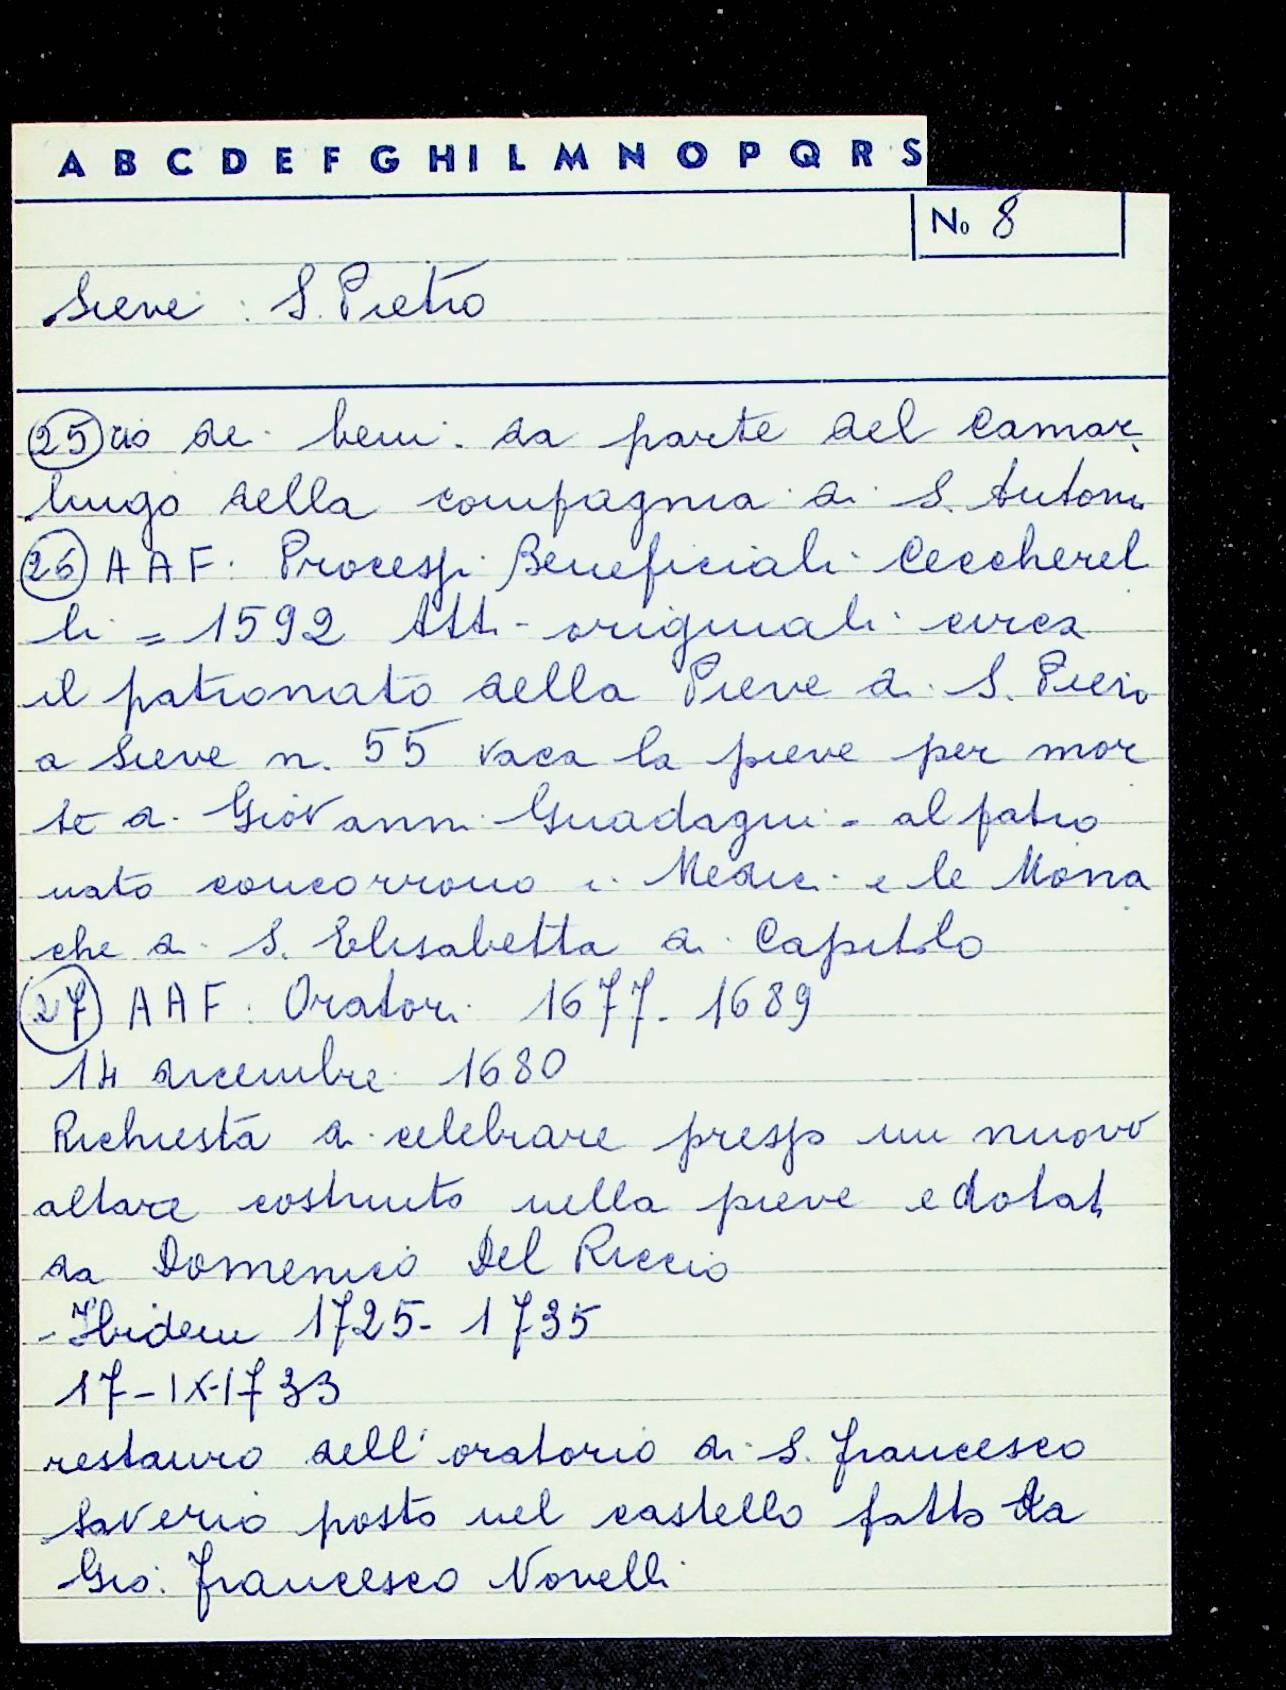 A B C D E F G H I L M N O P Q R S
No 8
Sieve : S. Pietro
25 cio dei beni da parte del Camar
lingo della compagnia di S. Antoni
26 AAF. Processi Beneficiali Ceccherel
li = 1592 Atti originali circa
il patronato della Pieve di S. Piero
a Sieve n. 55 vaca la pieve per mor
te di Giovanni Guadagni - al patro
nato concorrono i Medici e le Mona
che di S. Elisabetta di Capitolo
27 AAF. Oratori 1677-1689
14 dicembre 1680
Richiesta di celebrare presso un nuovo
altare costruito nella pieve e dotat
da Domenico Del Riccio
- Ibidem 1725-1735
17-IX-1733
restauro dell'oratorio di S. Francesco
Saverio posto nel castello fatto da
Gio. Francesco Novelli